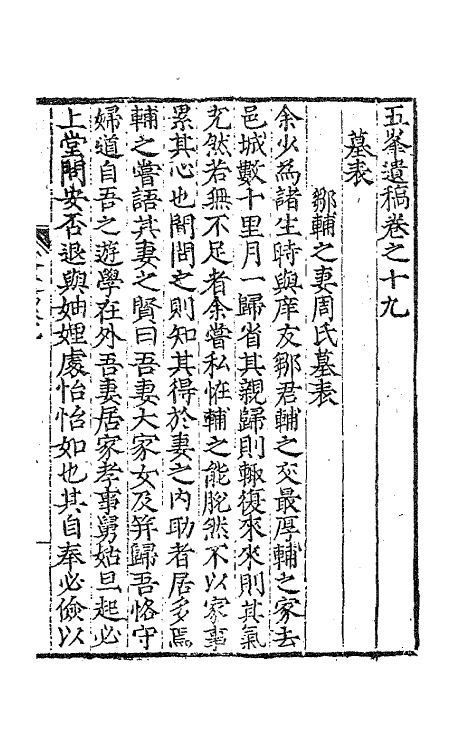 五峯遺稿卷之十九
墓表
鄒輔之妻周氏墓表
余少為諸生時與庠友鄒君輔之交最厚輔之家去
邑城數十里月一歸省其親歸則輒復來來則其氣
充然若無不足者余嘗私恠輔之能脫然不以家事
累其心也間問之則知其得於妻之內助者居多焉
輔之嘗語其妻之賢曰吾妻大家女及笄歸吾恪守
婦道自吾之遊學在外吾妻居家孝事舅姑旦起必
上堂問安否退與妯娌處怡怡如也其自奉必儉以